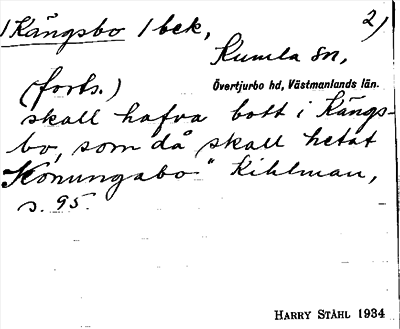 /Kängsbo /bek, 2)
Kumla sn,
(forts.) Övertjurbo hd, Västmanlands län.
skall hafva bott i Kängs-
bo, som då skall hetat
"Konungabo" Kihlman,
s. 95.
HARRY STÅHL 1934